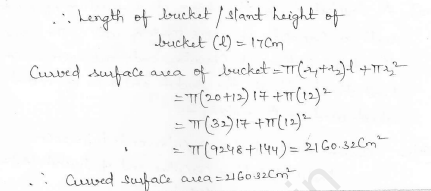 ∴ Length of bucket / slant height of
bucket (l) = 17Cm
Curved surface area of bucket = π(r₁+r₂)l + πr₂²
= π(20+12)17 + π(12)²
= π(32)17 + π(12)²
= π(9248+144) = 2160.32Cm²
∴ Curved surface area = 2160.32Cm²